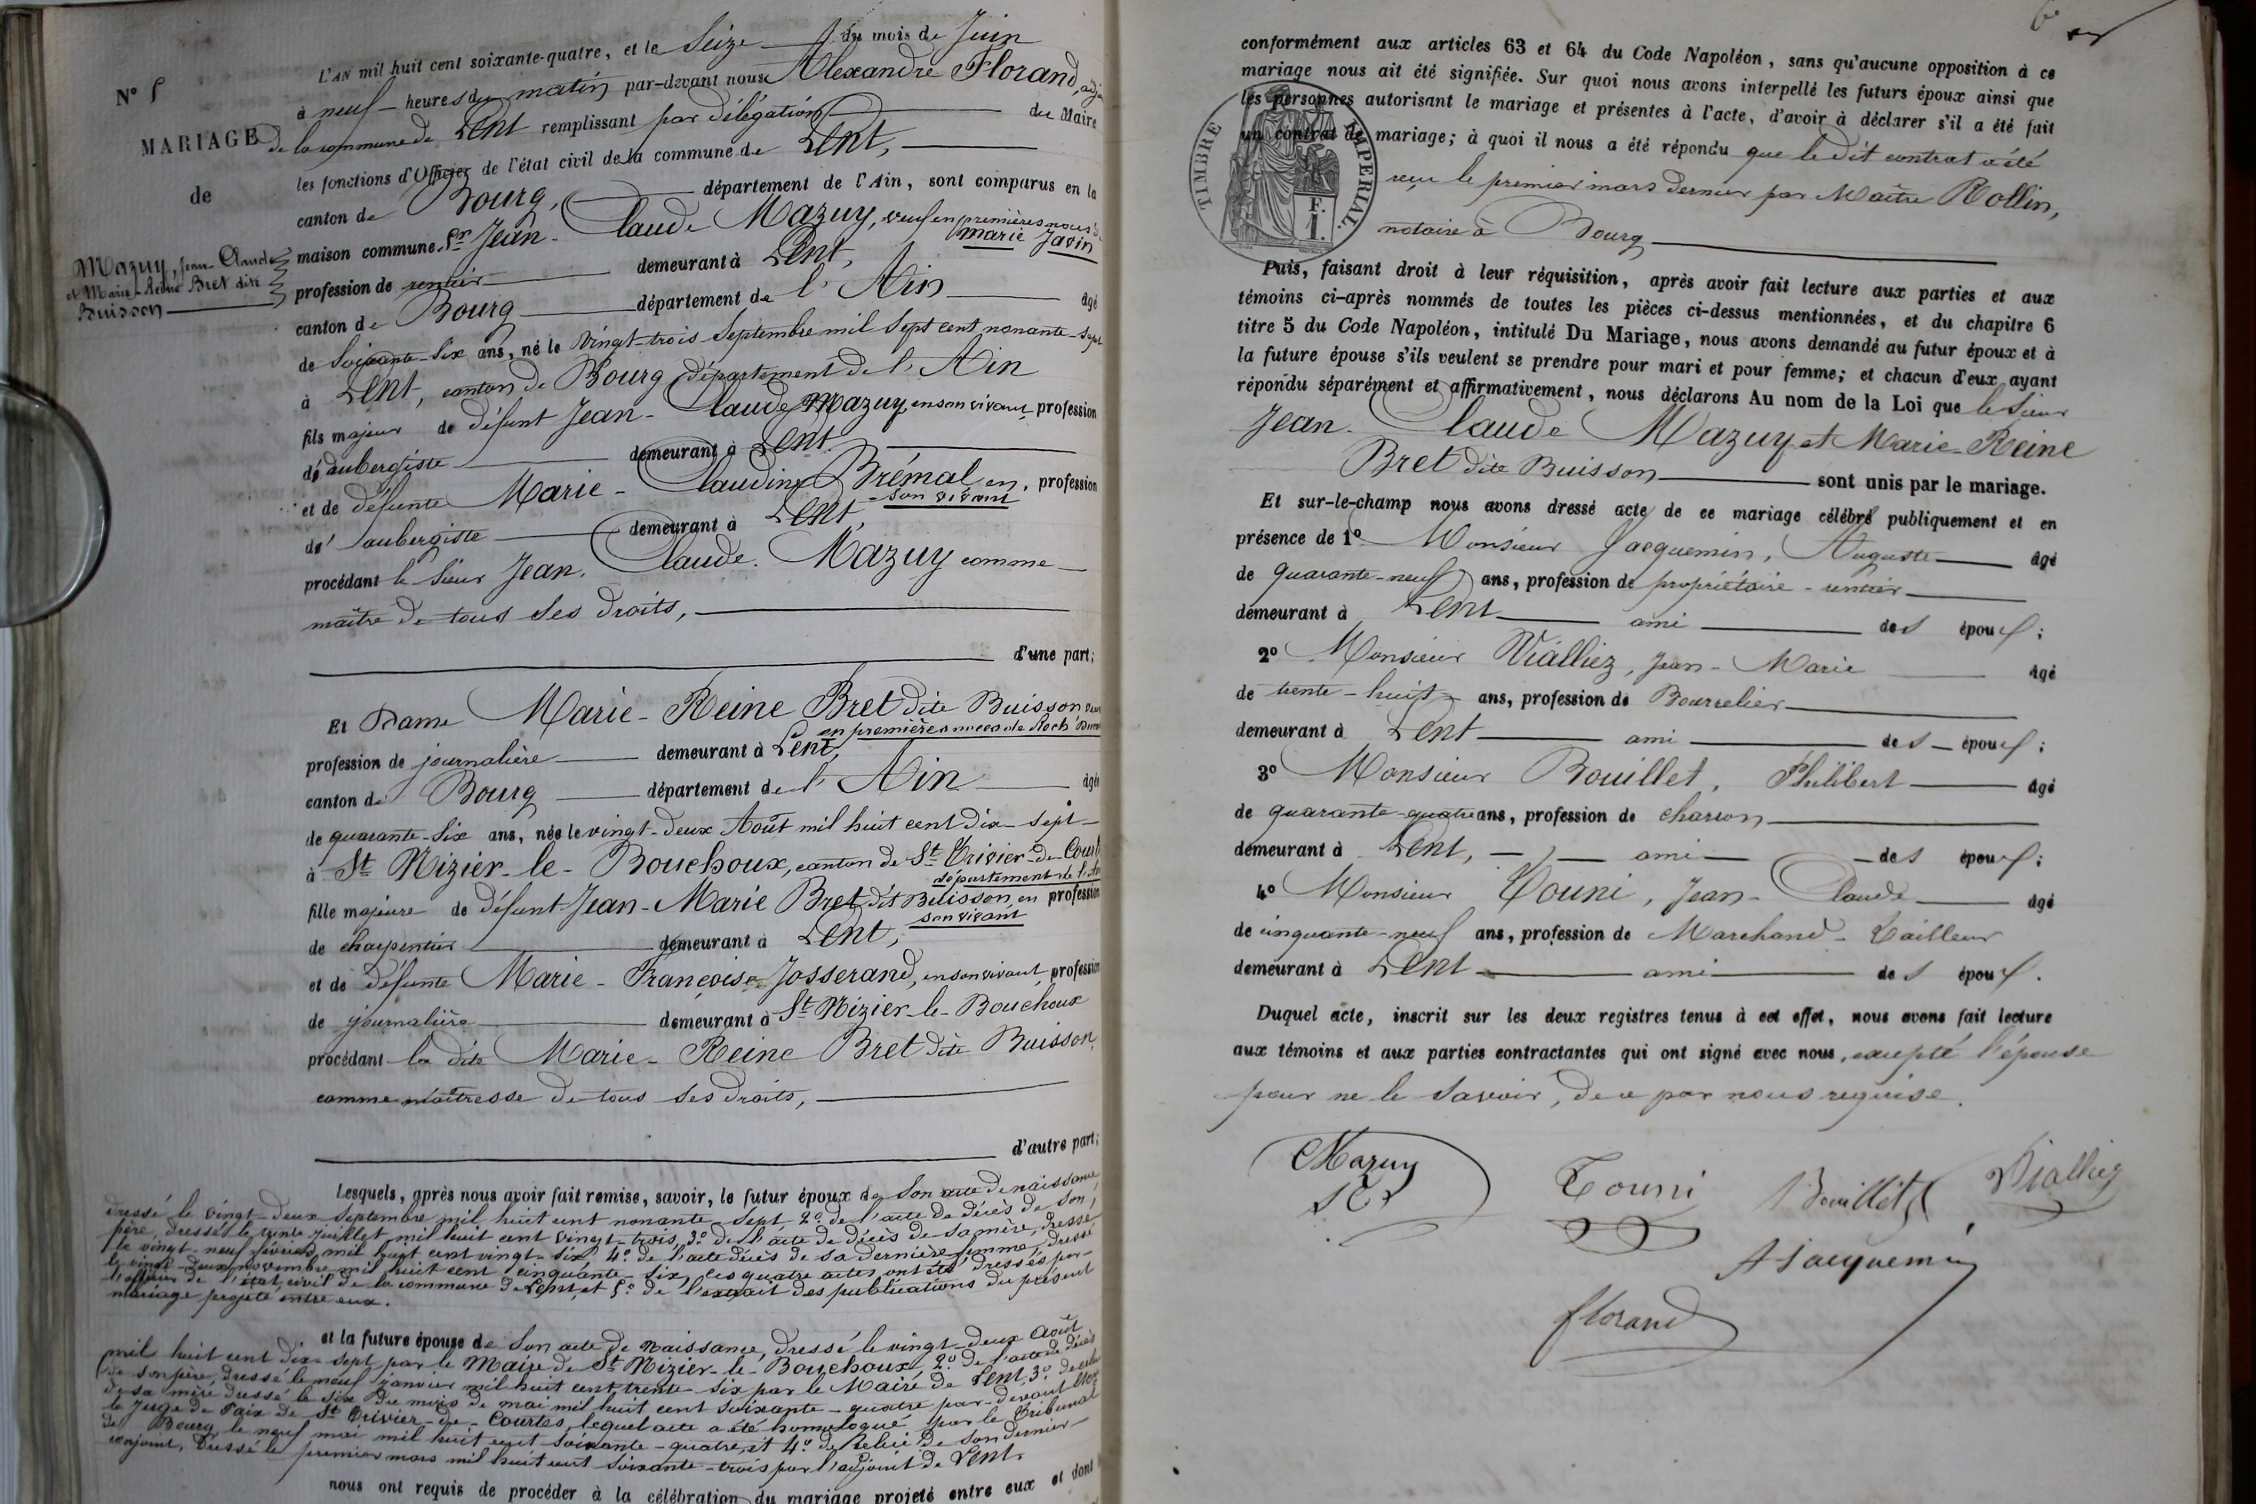 N° 5
MARIAGE
de
Mazuy, Jean Claude
et Marie-Reine Bret dite
Buisson
L'AN mil huit cent soixante-quatre, et le Seize du mois de Juin
à neuf heures du matin par-devant nous Alexandre Florand, adj
de la commune de Lent remplissant par délégation du Maire
les fonctions d'Officier de l'état civil de la commune de Lent,
canton de Bourg, département de l'Ain, sont comparus en la
maison commune Sr Jean-Claude Mazuy, veuf en premières noces de
marie Javin
profession de rentier demeurant à Lent,
canton de Bourg département de l'Ain âgé
de soixante-six ans, né le vingt-trois Septembre mil sept cent nonante-sept
à Lent, canton de Bourg département de l'Ain
fils majeur de défunt Jean-Claude Mazuy, en son vivant, profession
d'aubergiste demeurant à Lent
et de défunte Marie-Claudine Brémal en profession
son vivant
d'aubergiste demeurant à Lent,
procédant le Sieur Jean-Claude Mazuy comme
maître de tous ses droits,
d'une part;
Et Dame Marie-Reine Bret dite Buisson
en premières noces de Roch
profession de journalière demeurant à Lent,
canton de Bourg département de l'Ain âgée
de quarante-six ans, née le vingt-deux Août mil huit cent dix-sept
à St Nizier-le-Bouchoux, canton de St Trivier-de-Court
département de l'Ain
fille majeure de défunt Jean-Marie Bret dit Buisson, en profession
son vivant
de charpentier demeurant à Lent,
et de défunte Marie-Françoise Josserand, en son vivant, profession
de journalière demeurant à St Nizier-le-Bouchoux
procédant la dite Marie-Reine Bret dite Buisson,
comme maîtresse de tous ses droits,
d'autre part;
Lesquels, après nous avoir fait remise, savoir, le futur époux de son acte de naissance,
dressé le vingt-deux Septembre mil huit cent nonante-sept, 2° de l'acte de décès de son
père, dressé le trente juillet mil huit cent vingt-trois, 3° de l'acte de décès de sa mère, dressé
le vingt-neuf février mil huit cent vingt-six, 4° de l'acte décès de sa dernière femme, dressé
le vingt-deux novembre mil huit cent cinquante-six, ces quatre actes ont été dressés par
l'officier de l'état civil de la commune de Lent, et 5° de l'extrait des publications du présent
mariage projeté entre eux.
et la future épouse de son acte de naissance, dressé le vingt-deux août
mil huit cent dix-sept par le Maire de St Nizier-le-Bouchoux, 2° de l'acte de décès
de son père, dressé le neuf janvier mil huit cent trente-six par le Maire de Lent, 3° de celui
de sa mère dressé le six du mois de mai mil huit cent soixante-quatre par-devant
le Juge de Paix de St Trivier-de-Courtes, lequel acte a été homologué par le Tribunal
de Bourg le neuf mai mil huit cent soixante-quatre, et 4° de celui de son dernier
conjoint, dressé le premier mars mil huit cent soixante-trois par l'adjoint de Lent.
nous ont requis de procéder à la célébration du mariage projeté entre eux et dont
conformément aux articles 63 et 64 du Code Napoléon, sans qu'aucune opposition à ce
mariage nous ait été signifiée. Sur quoi nous avons interpellé les futurs époux ainsi que
les personnes autorisant le mariage et présentes à l'acte, d'avoir à déclarer s'il a été fait
un contrat de mariage; à quoi il nous a été répondu que le dit contrat a été
reçu le premier mars dernier par Maître Rollin,
notaire à Bourg
TIMBRE IMPERIAL.
F.
1.
Puis, faisant droit à leur réquisition, après avoir fait lecture aux parties et aux
témoins ci-après nommés de toutes les pièces ci-dessus mentionnées, et du chapitre 6
titre 5 du Code Napoléon, intitulé Du Mariage, nous avons demandé au futur époux et à
la future épouse s'ils veulent se prendre pour mari et pour femme; et chacun d'eux ayant
répondu séparément et affirmativement, nous déclarons Au nom de la Loi que le Sieur
Jean-Claude Mazuy et Marie-Reine
Bret dite Buisson sont unis par le mariage.
Et sur-le-champ nous avons dressé acte de ce mariage célébré publiquement et en
présence de 1° Monsieur Jacquemin, Auguste âgé
de quarante-neuf ans, profession de propriétaire-rentier
demeurant à Lent ami des époux;
2° Monsieur Vialliez, Jean-Marie âgé
de trente-huit ans, profession de Bourrelier
demeurant à Lent ami des époux;
3° Monsieur Bouillet, Philibert âgé
de quarante-quatre ans, profession de charron
demeurant à Lent, ami des époux;
4° Monsieur Touni, Jean-Claude âgé
de cinquante-neuf ans, profession de Marchand-Tailleur
demeurant à Lent ami des époux.
Duquel acte, inscrit sur les deux registres tenus à cet effet, nous avons fait lecture
aux témoins et aux parties contractantes qui ont signé avec nous, excepté l'épouse
pour ne le savoir, de ce par nous requise.
Mazuy
Touni Bouillet Vialliez
A Jacquemin
florand